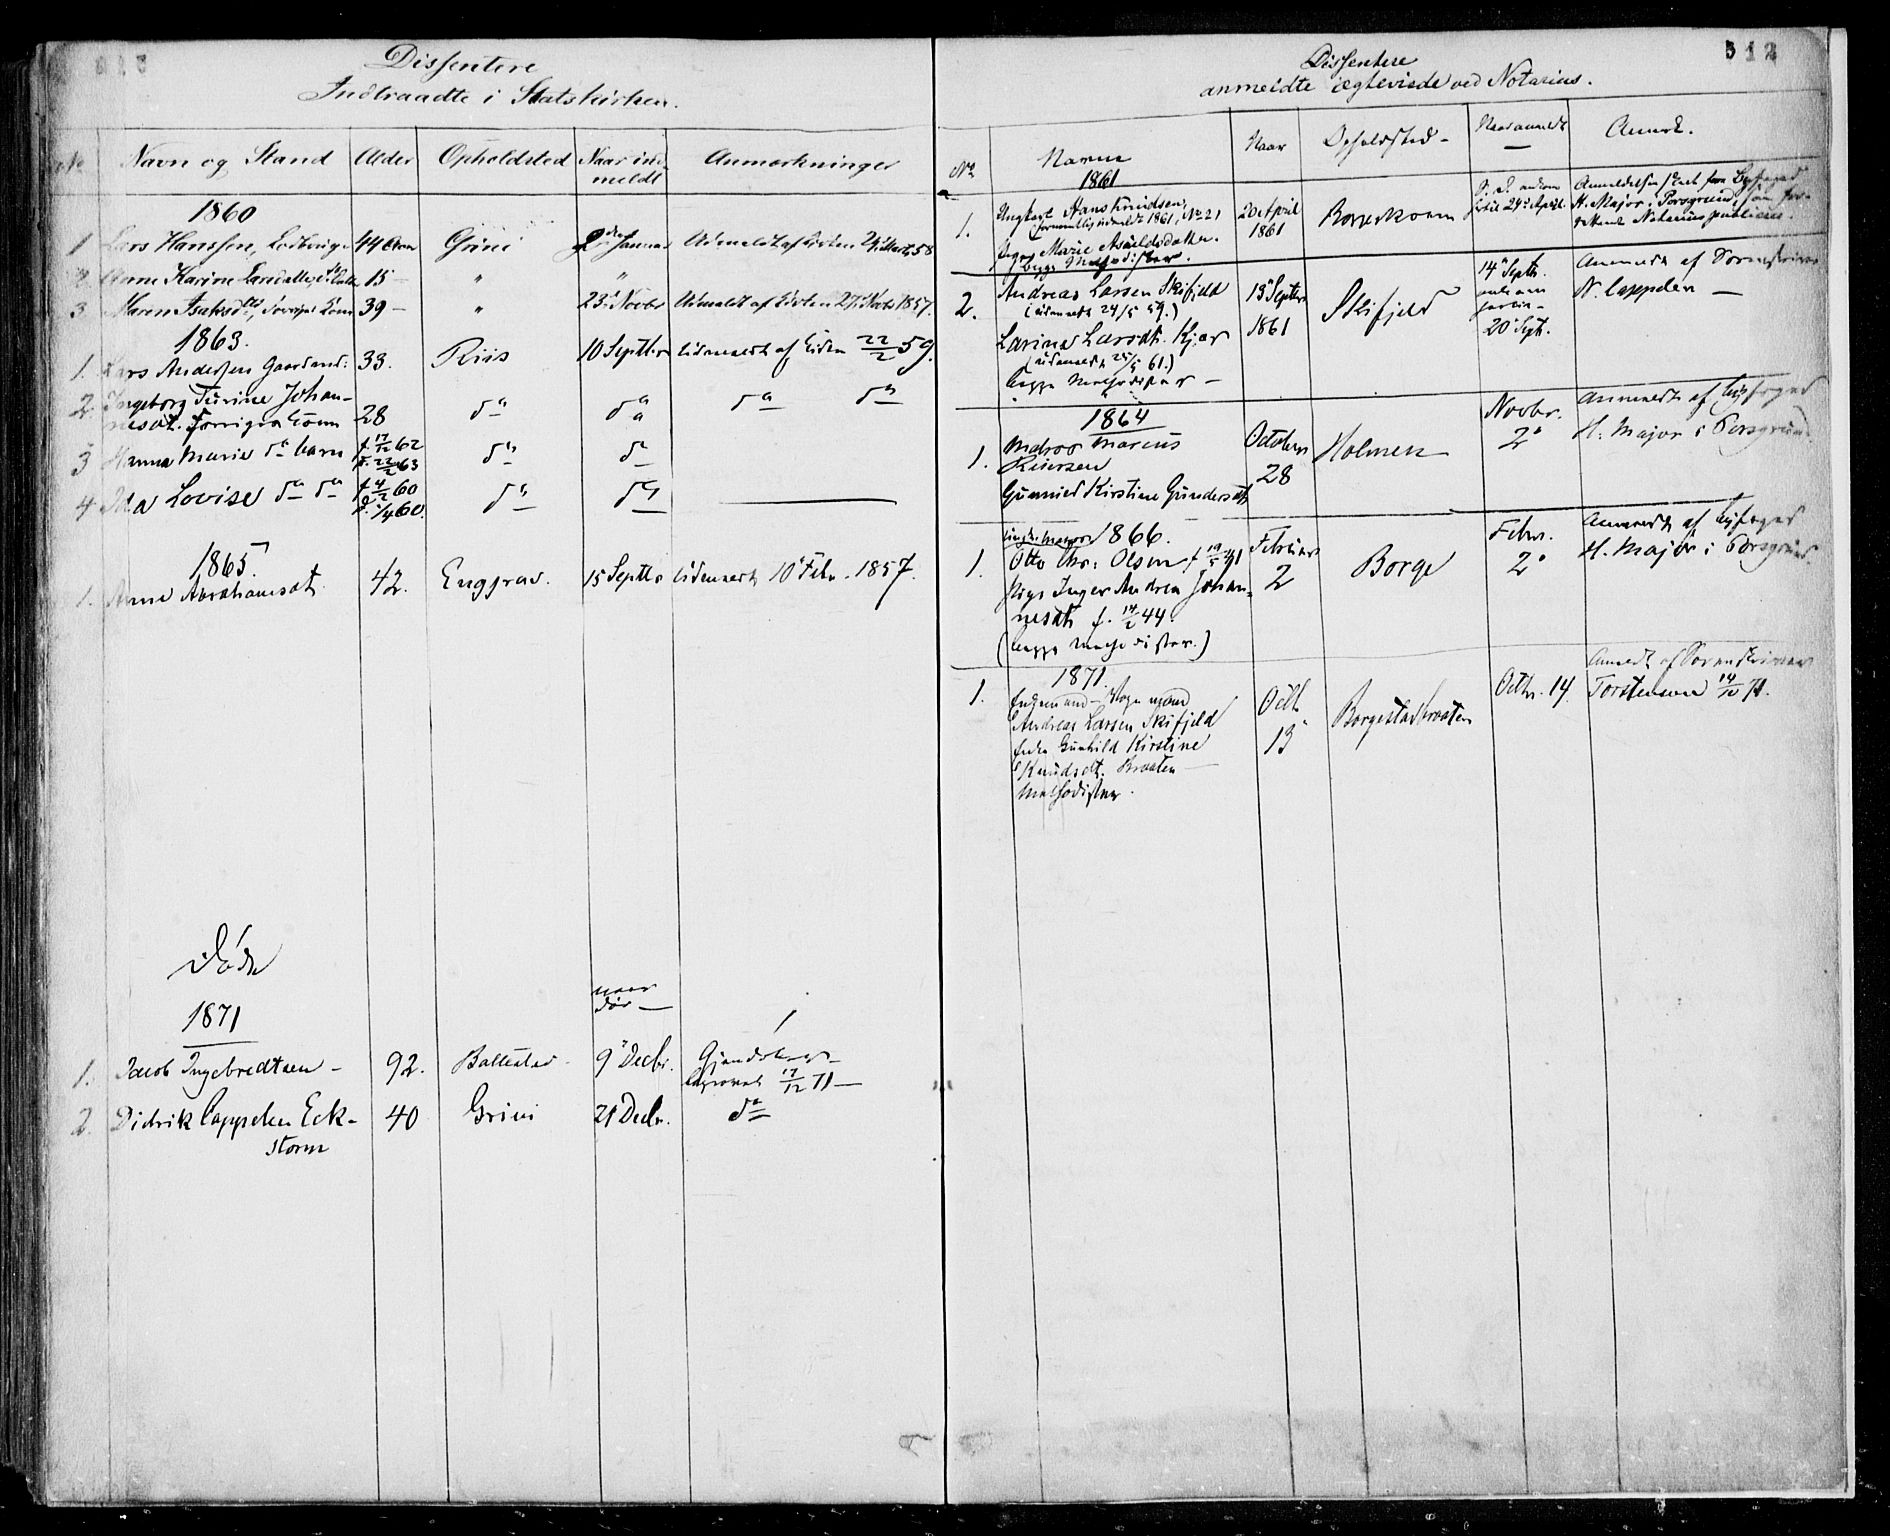 Dissentere
Indtraadte i Statskirken.
No Navn og Stand Alder Opholdsted Naar ind-
meldt Anmærkninger
1860
1 Lars Hanssen, 44 Aar Grini 2den Januar Udmeldt af Kirken 58
2 Anne Karine Larsdatter 15 — " "
3 Maren Isaksdtr, 39 — " 23 Novbr Udmeldt af Kirken 1857.
1863.
1. Lars Andersen Gaardmd: 33. Riis 10 Septbr Udmeldt af Kirken 22/2 59.
2. Ingeborg Turine Johan-
nesdt. Forriges Kone 28 do do do do
3 Hanna Marie do barn f. 17/12 62
d. 22/2 63 do do
4 Ida Lovise do do f. 4/2 60
d. 1/4 60. do do ——
1865.
1. Anne Abrahamsdt. 42. Enggrav. 15 Septbr Udmeldt 10 Febr. 1857.
Døde
1871
naar
død —
1. Jacob Ingebredtsen — 92. Ballestad 9 Decbr.
17/12 71 —
2. Didrik Cappelen Eck-
storm 40 Grini 21 Decbr. do
512
Dissentere
anmeldte ægteviede ved Notarius.
No Navne Naar Opholdsted — Naar anmeldt
— Anmrk.
1861
1. Ungkarl Hans Knudsen,
udmeldt 1861, No 21
Pige Marie
begge Methodister. 20 April
1861 24 April. Anmeldelsen fra Byfoged
H. Major i Porsgrund, som
Notarius publicus.
2. Andreas Larsen Skifjeld
(udmeldt 24/5 59.)
Larine Larsdt. Kjær
(udmeldt 25/5 61.)
begge Methodister — 13 Septbr
1861 Skifjeld 14 Septb.
20 Septb. Anmeldt af Sorenskriver
N. Cappelen —
1864
1. Marius
Gunnild Kirstine Gundersdt. October
28 Holmen Novbr.
2 Anmeldt af Byfoged
H. Major i Porsgrund.
1866.
1. Ungkarl
Otto Chr: Olsen f. 19/5 41
Pige Inger Andrea Johan-
nesdt. f. 14/2 44.
(begge Methodister.) Februar
2 Borge Febr.
2 Anmeldt af Byfoged
H. Major i Porsgrund.
1871.
1. Enkemand
Andreas Larsen Skifjeld
Enke Gunhild Kirstine
Knudsdt. Braaten —
Methodister. Octb.
13 Borgestadbraaten Octbr. 14. Anmeldt af Sorenskriver
Torstensen 14/10 71.